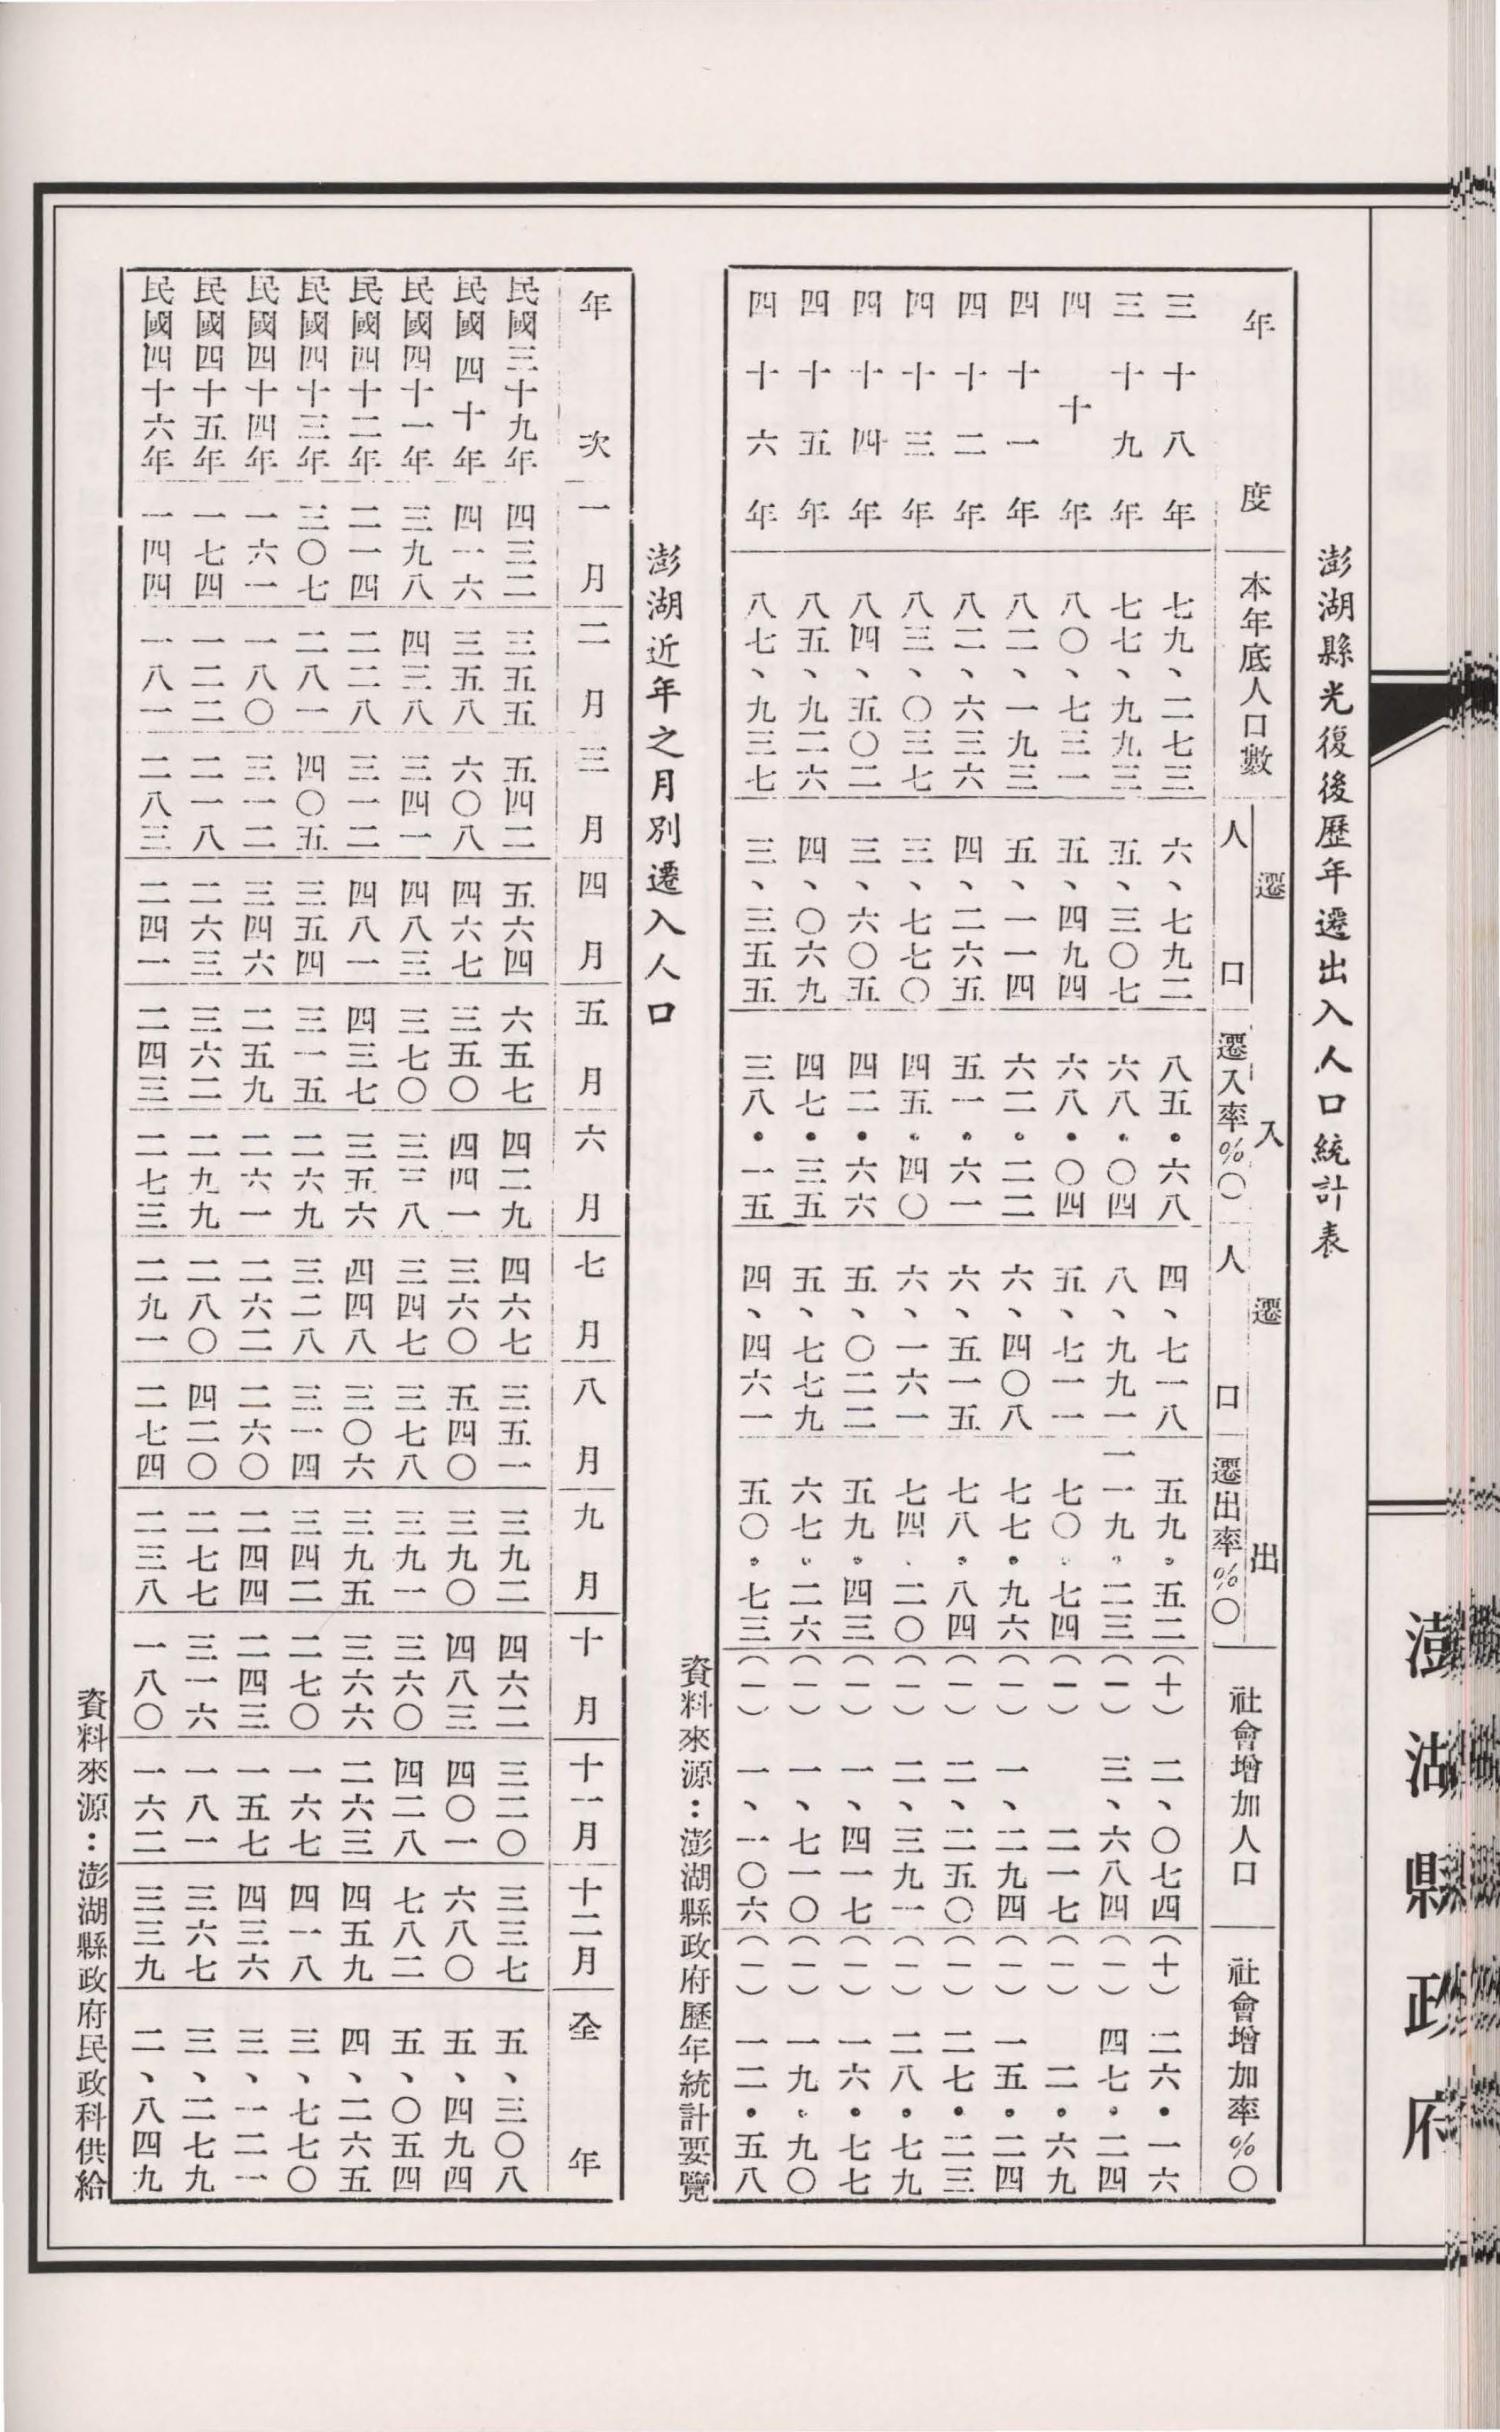 澎湖縣政府
澎湖縣光復後歷年遷出入人口統計表
年度 本年底人口數 遷入 人口 遷入率%〇 遷出 人口 遷出率%〇 社會增加人口 社會增加率%〇
三十八年 七九、二七三 六、七九二 八五・六八 四、七一八 五九・五二 (十) 二、〇七四 (十) 二六・一六
三十九年 七七、九九三 五、三〇七 六八・〇四 八、九九一 一一九・二三 (一) 三、六八四 (一) 四七・二四
四十年 八〇、七三一 五、四九四 六八・〇四 五、七一一 七〇・七四 (一) 二一七 (一) 二・六九
四十一年 八二、一九三 五、一一四 六二・二二 六、四〇八 七七・九六 (一) 一、二九四 (一) 一五・二四
四十二年 八二、六三六 四、二六五 五一・六一 六、五一五 七八・八四 (一) 二、二五〇 (一) 二七・二三
四十三年 八三、〇三七 三、七七〇 四五・四〇 六、一六一 七四・二〇 (一) 二、三九一 (一) 二八・七九
四十四年 八四、五〇二 三、六〇五 四二・六六 五、〇二二 五九・四三 (一) 一、四一七 (一) 一六・七七
四十五年 八五、九二六 四、〇六九 四七・三五 五、七七九 六七・二六 (一) 一、七一〇 (一) 一九・九〇
四十六年 八七、九三七 三、三五五 三八・一五 四、四六一 五〇・七三 (一) 一、一〇六 (一) 一二・五八
資料來源：澎湖縣政府歷年統計要覽
澎湖近年之月別遷入人口
年次 一月 二月 三月 四月 五月 六月 七月 八月 九月 十月 十一月 十二月 全年
民國三十九年 四三二 三五五 五四二 五六四 六五七 四二九 四六七 三五一 三九二 四六二 三二〇 三三七 五、三〇八
民國四十年 四一六 三五八 六〇八 四六七 三五〇 四四一 三六〇 五四〇 三九〇 四八三 四〇一 六八〇 五、四九四
民國四十一年 三九八 四三八 三四一 四八三 三七〇 三三八 三四七 三七八 三九一 三六〇 四二八 七八二 五、〇五四
民國四十二年 二一四 二二八 三一二 四八一 四三七 三五六 四四八 三〇六 三九五 三六六 二六三 四五九 四、二六五
民國四十三年 三〇七 二八一 四〇五 三五四 三一五 二六九 三二八 三一四 三四二 二七〇 一六七 四一八 三、七七〇
民國四十四年 一六一 一八〇 三一二 三四六 二五九 二六一 二六二 二六〇 二四四 二四三 一五七 四三六 三、一二一
民國四十五年 一七四 一二二 二一八 二六三 三六二 二九九 二八〇 四二〇 二七七 三一六 一八一 三六七 三、二七九
民國四十六年 一四四 一八一 二八三 二四一 二四三 二七三 二九一 二七四 二三八 一八〇 一六二 三三九 二、八四九
資料來源：澎湖縣政府民政科供給